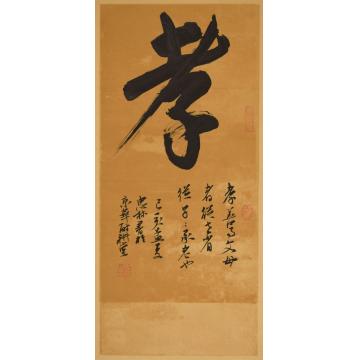 孝
孝善事父母
者從老省
從子〻承老也
己亥孟夏
書於
京華